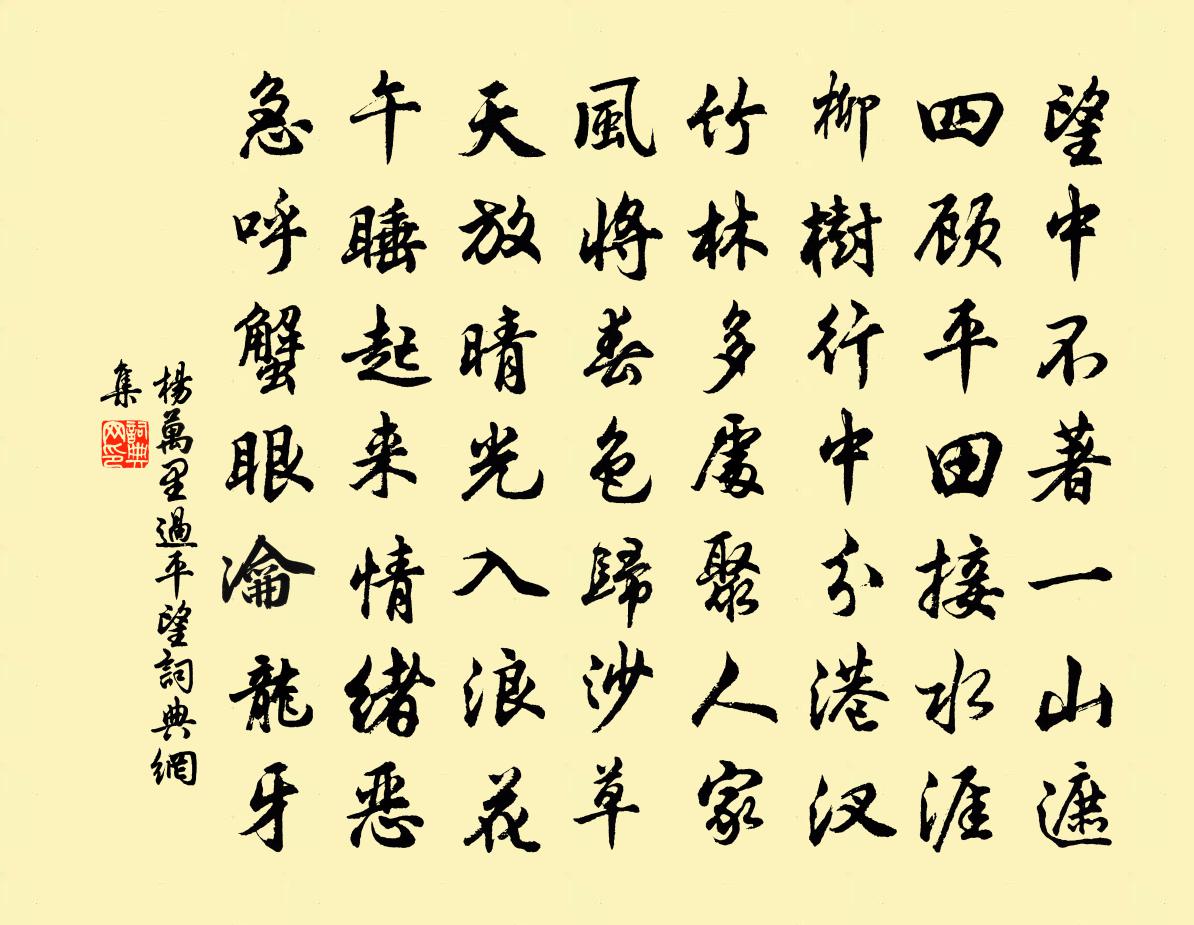 望中不著一山遮
四顾平田接水涯
柳樹行中分港汊
竹林多處聚人家
風將春色歸沙草
天放晴光入浪花
午睡起来情緒恶
急呼蟹眼瀹龍牙
楊萬里過平望詞典網
集
詞典
网印